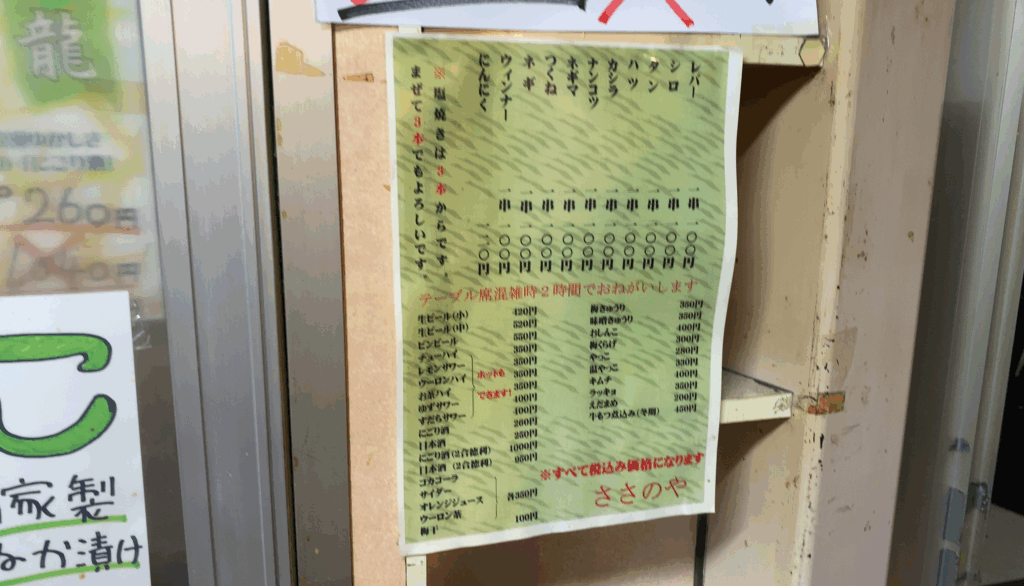 レバー 一串 一〇〇円
シロ 一串 一〇〇円
タン 一串 一〇〇円
ハツ 一串 一〇〇円
カシラ 一串 一〇〇円
ナンコツ 一串 一〇〇円
ネギマ 一串 一〇〇円
つくね 一串 一〇〇円
ネギ 一串 一〇〇円
ウィンナー 一串 一〇〇円
にんにく 一二〇円
※塩焼きは3本からです。
まぜて3本でもよろしいです。
テーブル席混雑時2時間でおねがいします
生ビール(小) 420円
生ビール(中) 520円
ビンビール 550円
チューハイ 350円
レモンサワー 350円
ウーロンハイ 350円
お茶ハイ 350円
ゆずサワー 400円
すだちサワー 400円
ホットも
できます!
にごり酒 200円
日本酒 250円
にごり酒(2合徳利) 1000円
日本酒 (2合徳利) 950円
コカコーラ
サイダー
オレンジジュース 各350円
ウーロン茶
梅干 100円
梅きゅうり 350円
味噌きゅうり 350円
おしんこ 400円
梅くらげ 300円
やっこ 280円
温やっこ 330円
キムチ 400円
ラッキョ 350円
えだまめ 200円
牛もつ煮込み(冬期) 450円
※すべて税込み価格になります
ささのや
龍
260円
家製
か漬け